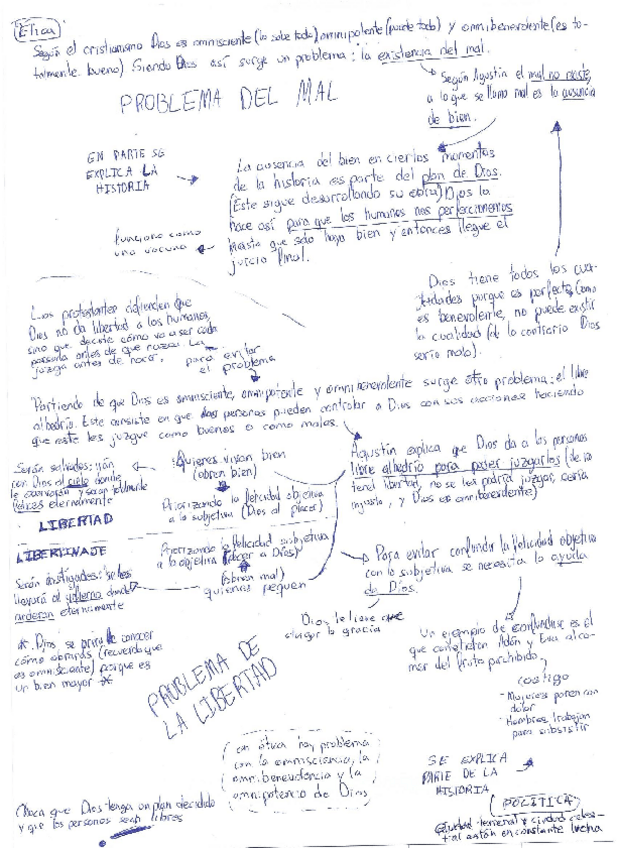 Ética
Según el cristianismo Dios es omnisciente (lo sabe todo), omnipotente (puede todo) y omnibenevolente (es to-
talmente bueno) Siendo Dios así surge un problema: la existencia del mal.
PROBLEMA DEL MAL
Según Agustín el mal no existe,
a lo que se llama mal es la ausencia
de bien.
EN PARTE SE
EXPLICA LA
HISTORIA
La ausencia del bien en ciertos momentos
de la historia es parte del plan de Dios.
(Este sigue desarrollando su obra) Dios la
hace así para que los humanos nos perfeccionemos
hasta que solo haya bien y entonces llegue el
juicio final.
funciona como
una vacuna
Dios tiene todas las cua-
lidades porque es perfecto, como
es benevolente, no puede existir
la cualidad (de lo contrario Dios
sería malo).
Los protestantes defienden que
Dios no da libertad a los humanos,
sino que decide cómo va a ser cada
persona antes de que nazca. La
juzga antes de nacer.
para evitar
el problema
Partiendo de que Dios es omnisciente, omnipotente y omnibenevolente surge otro problema: el libre
albedrío. Este consiste en que las personas pueden controlar a Dios con sus acciones haciendo
que este les juzgue como buenos o como malos.
Agustín explica que Dios da a las personas
libre albedrío para poder juzgarlos (de no
tener libertad, no se les podría juzgar, sería
injusto, y Dios es omnibenevolente)
Serán salvados: irán
con Dios al cielo donde
le y serán totalmente
felices eternamente
LIBERTAD
Quienes vivan bien
(obren bien)
Priorizando la felicidad objetiva
a la subjetiva (Dios al placer)
LIBERTINAJE
Serán castigados: se les
llevará al infierno donde
arderán eternamente
Priorizando la felicidad subjetiva
a la objetiva (placer a Dios)
(obren mal)
quienes pequen
Para evitar confundir la felicidad objetiva
con la subjetiva se necesita la ayuda
de Dios.
Dios le tiene que
otorgar la gracia
* Dios se priva de conocer
cómo obrarás (recuerda que
es omnisciente) porque es
un bien mayor *
PROBLEMA DE
LA LIBERTAD
Un ejemplo de confundirse es el
que cometieron Adán y Eva al co-
mer del fruto prohibido.
castigo
- Mujeres paren con
dolor
- Hombres trabajan
para subsistir
(en ética hay problema
con la omnisciencia, la
omnibenevolencia y la
omnipotencia de Dios
SE EXPLICA
PARTE DE LA
HISTORIA
Choca que Dios tenga un plan decidido
y que las personas sean libres
POLÍTICA
Ciudad terrenal y ciudad celes-
tial están en constante lucha